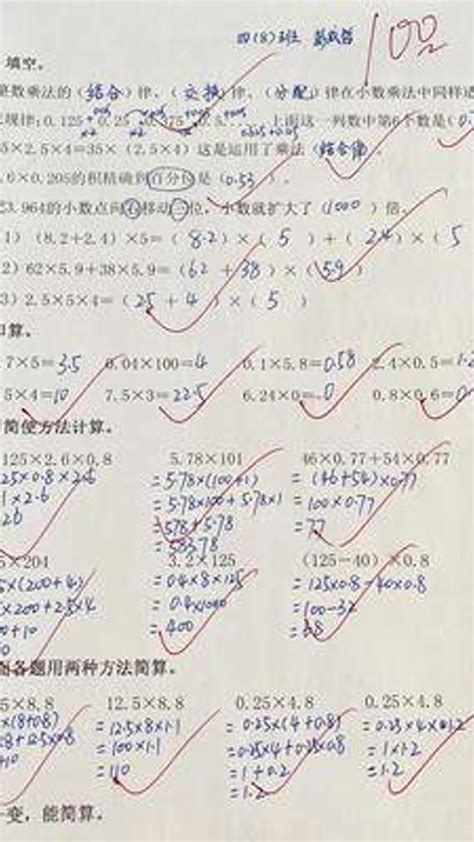 四(8)班
100
填空。
数乘法的(结合)律、(交换)律、(分配)律在小数乘法中同样适
规律:0.125 0.25 0.375 0.5 上面这一列数中第6个数是(0.
5×2.5×4=35×(2.5×4)这是运用了乘法(结合律
.6×0.205的积精确到百分位是(0.53)。
3.964的小数点向右移动三位,小数就扩大了(1000)倍。
1)(8.2+2.4)×5=(8.2)×(5)+(2.4)×(5
2)62×5.9+38×5.9=(62+38)×(5.9)
3)2.5×5×4=(25+4)×(5)
算。
7×5=3.5 0.04×100=4 0.1×5.8=0.58 2.4×0.5=1.2
5×4=10 7.5×3=22.5 6.24×0=0 0.8×0.6=0.
简便方法计算。
125×2.6×0.8 5.78×101 46×0.77+54×0.77
25×0.8×2.6 =5.78×(100+1) =(46+54)×0.77
1×2.6 =5.78×100+5.78×1 =100×0.77
26 =578+5.78 =77
=583.78
5×204 3.2×125 (125-40)×0.8
5×(200+4) =0.4×8×125 =125×0.8-40×0.8
×200+2.5×4 =0.4×1000 =100-32
0+10 =400 =68
各题用两种方法简算。
5×8.8 12.5×8.8 0.25×4.8 0.25×4.8
×(8+0.8) =12.5×8×1.1 =0.25×(4+0.8) =0.25×4×1.2
×8+12.5×0.8 =100×1.1 =0.25×4+0.25×0.8 =1×1.2
+10 =110 =1+0.2 =1.2
=1.2
一变,能简算。